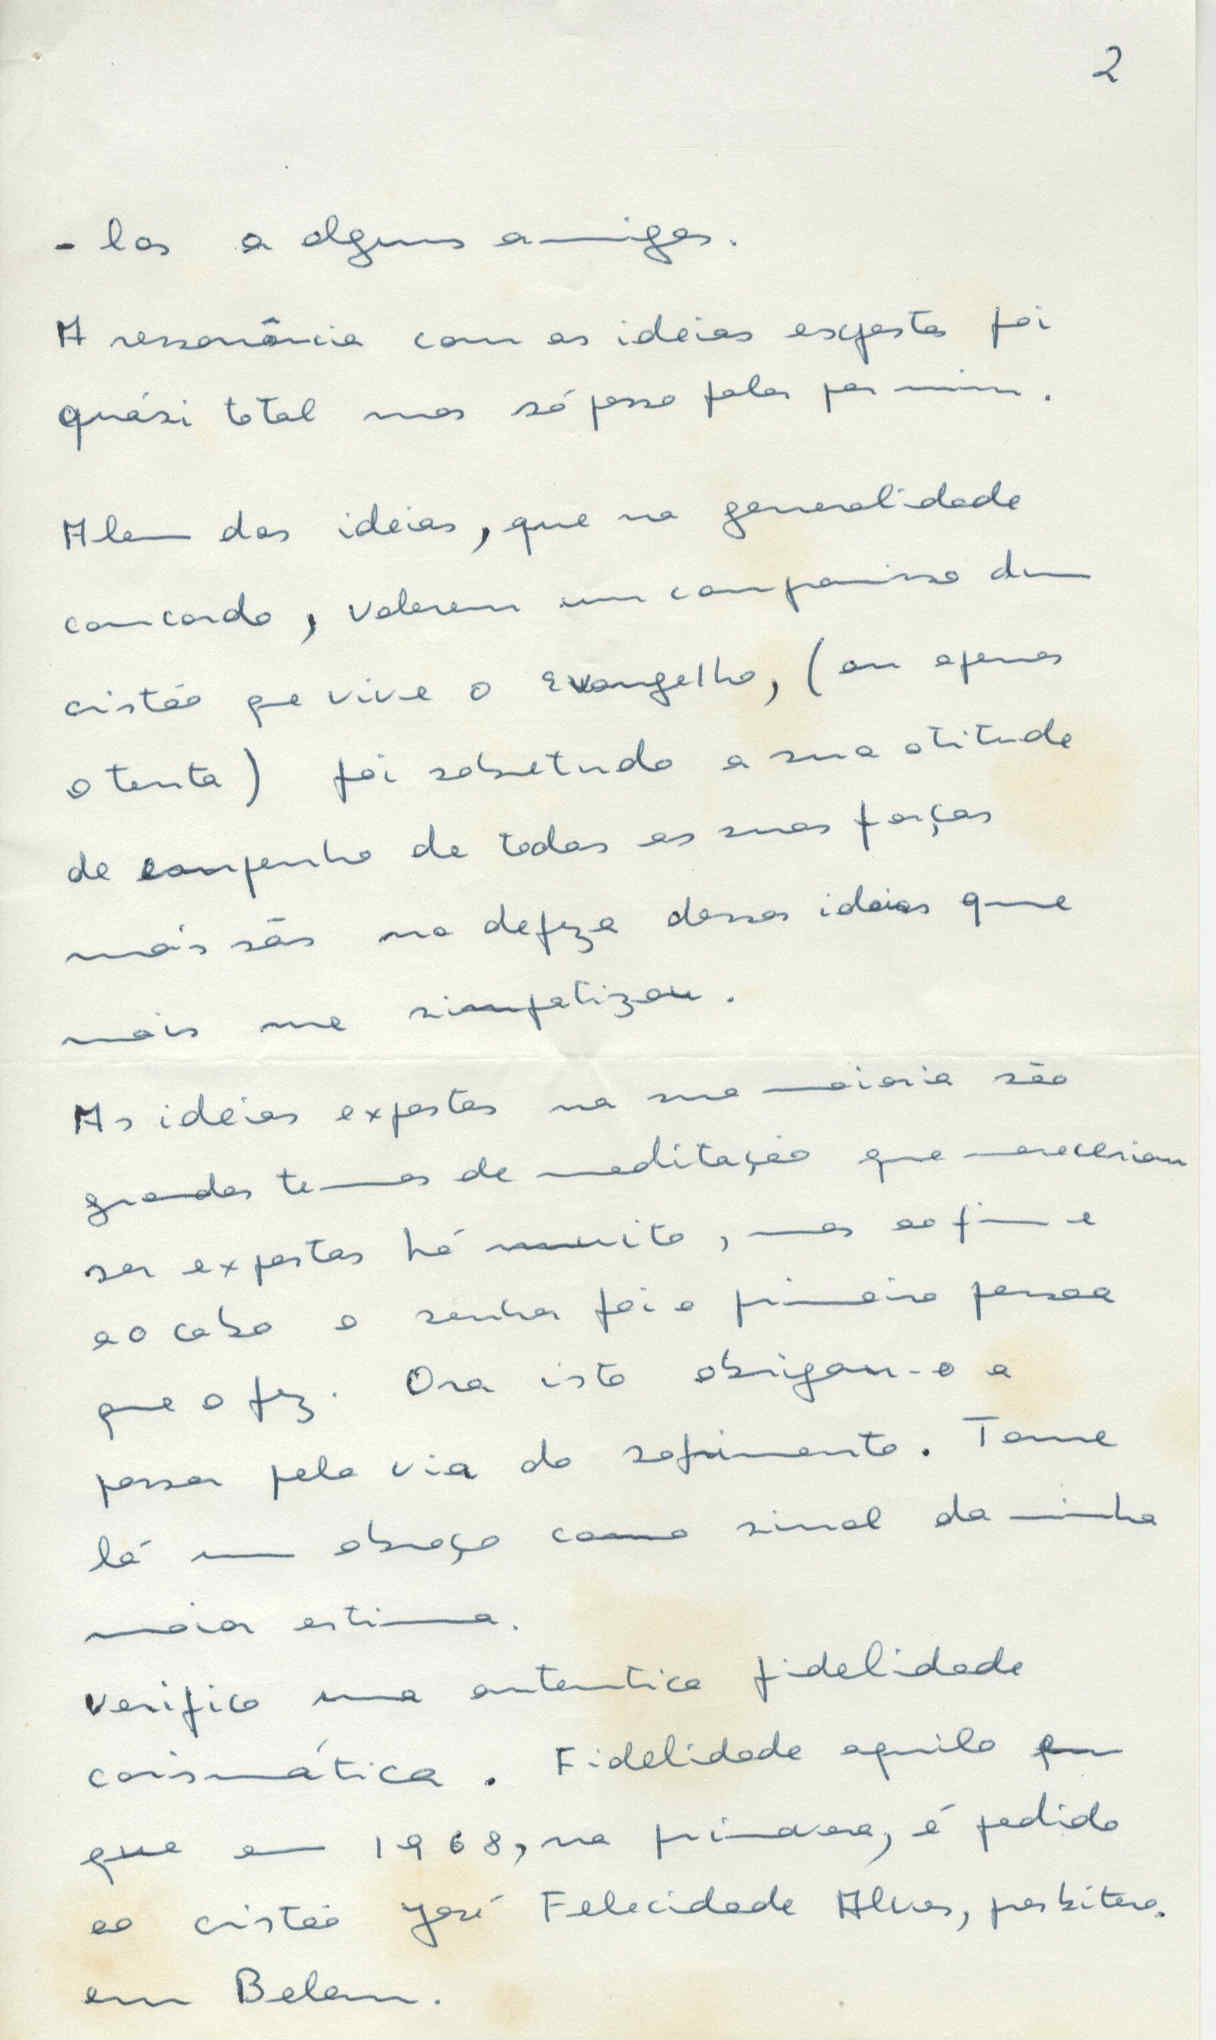 2
-los a alguns amigos.
A ressonância com as ideias expostas foi
quási total mas só posso falar por mim.
Alem das ideias, que na generalidade
concordo, valerem um compromisso dum
cristão que vive o Evangelho, (ou apenas
o tenta) foi sobretudo a sua atitude
de empenho de todas as suas forças
mais sãs na defeza dessas ideias que
mais me simpatizou.
As ideias expostas na sua maioria são
grandes temas de meditação que mereceriam
ser expostas há muito, mas ao fim e
ao cabo o senhor foi a primeira pessoa
que o fez. Ora isto obrigou-o a
passar pela via do sofrimento. Tome
lá um abraço como sinal da minha
maior estima.
Verifico uma autentica fidelidade
carismática. Fidelidade aquilo
que em 1968, na primavera, é pedido
ao cristão José Felecidade Alves, presbitero.
em Belem.